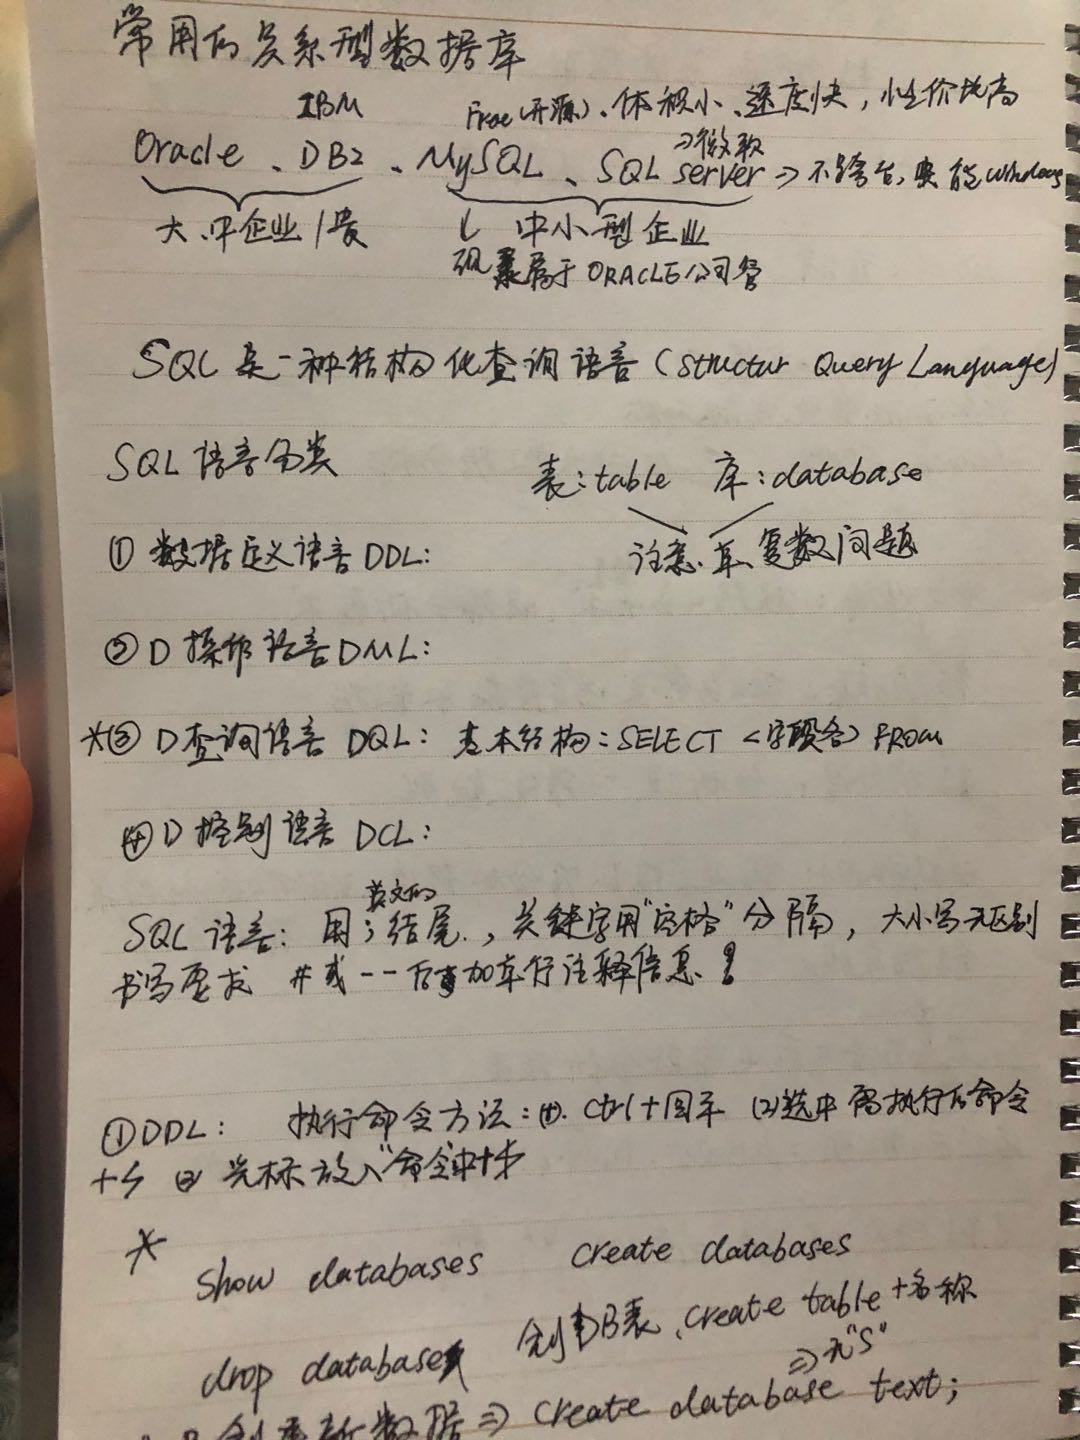 常用的关系型数据库
IBM Free(开源)、体积小、速度快，性价比高
⇒微软
Oracle、DB2、MySQL、SQL server ⇒不跨台，只能windows
大、中企业/贵 ↓ 中小型企业
现属于ORACLE公司管
SQL是一种结构化查询语言(Structur Query Language)
SQL语言分类 表:table 库:database
①数据定义语言DDL: 注意单、复数问题
②D操作语言DML:
*③D查询语言DQL:基本结构:SELECT <字段名> FROM
④D控制语言DCL:
英文的
SQL语言:用;结尾.,关键字用"空格"分隔，大小写无区别
书写要求 #或--后加单行注释信息!
①DDL: 执行命令方法:(1). Ctrl+回车 (2)选中需执行的命令
+⚡ (3)光标放入"命令中+⚡
*
show databases create databases
drop database 创DB表、create table+名称
⇒无"S"
创建新数据⇒create database text;